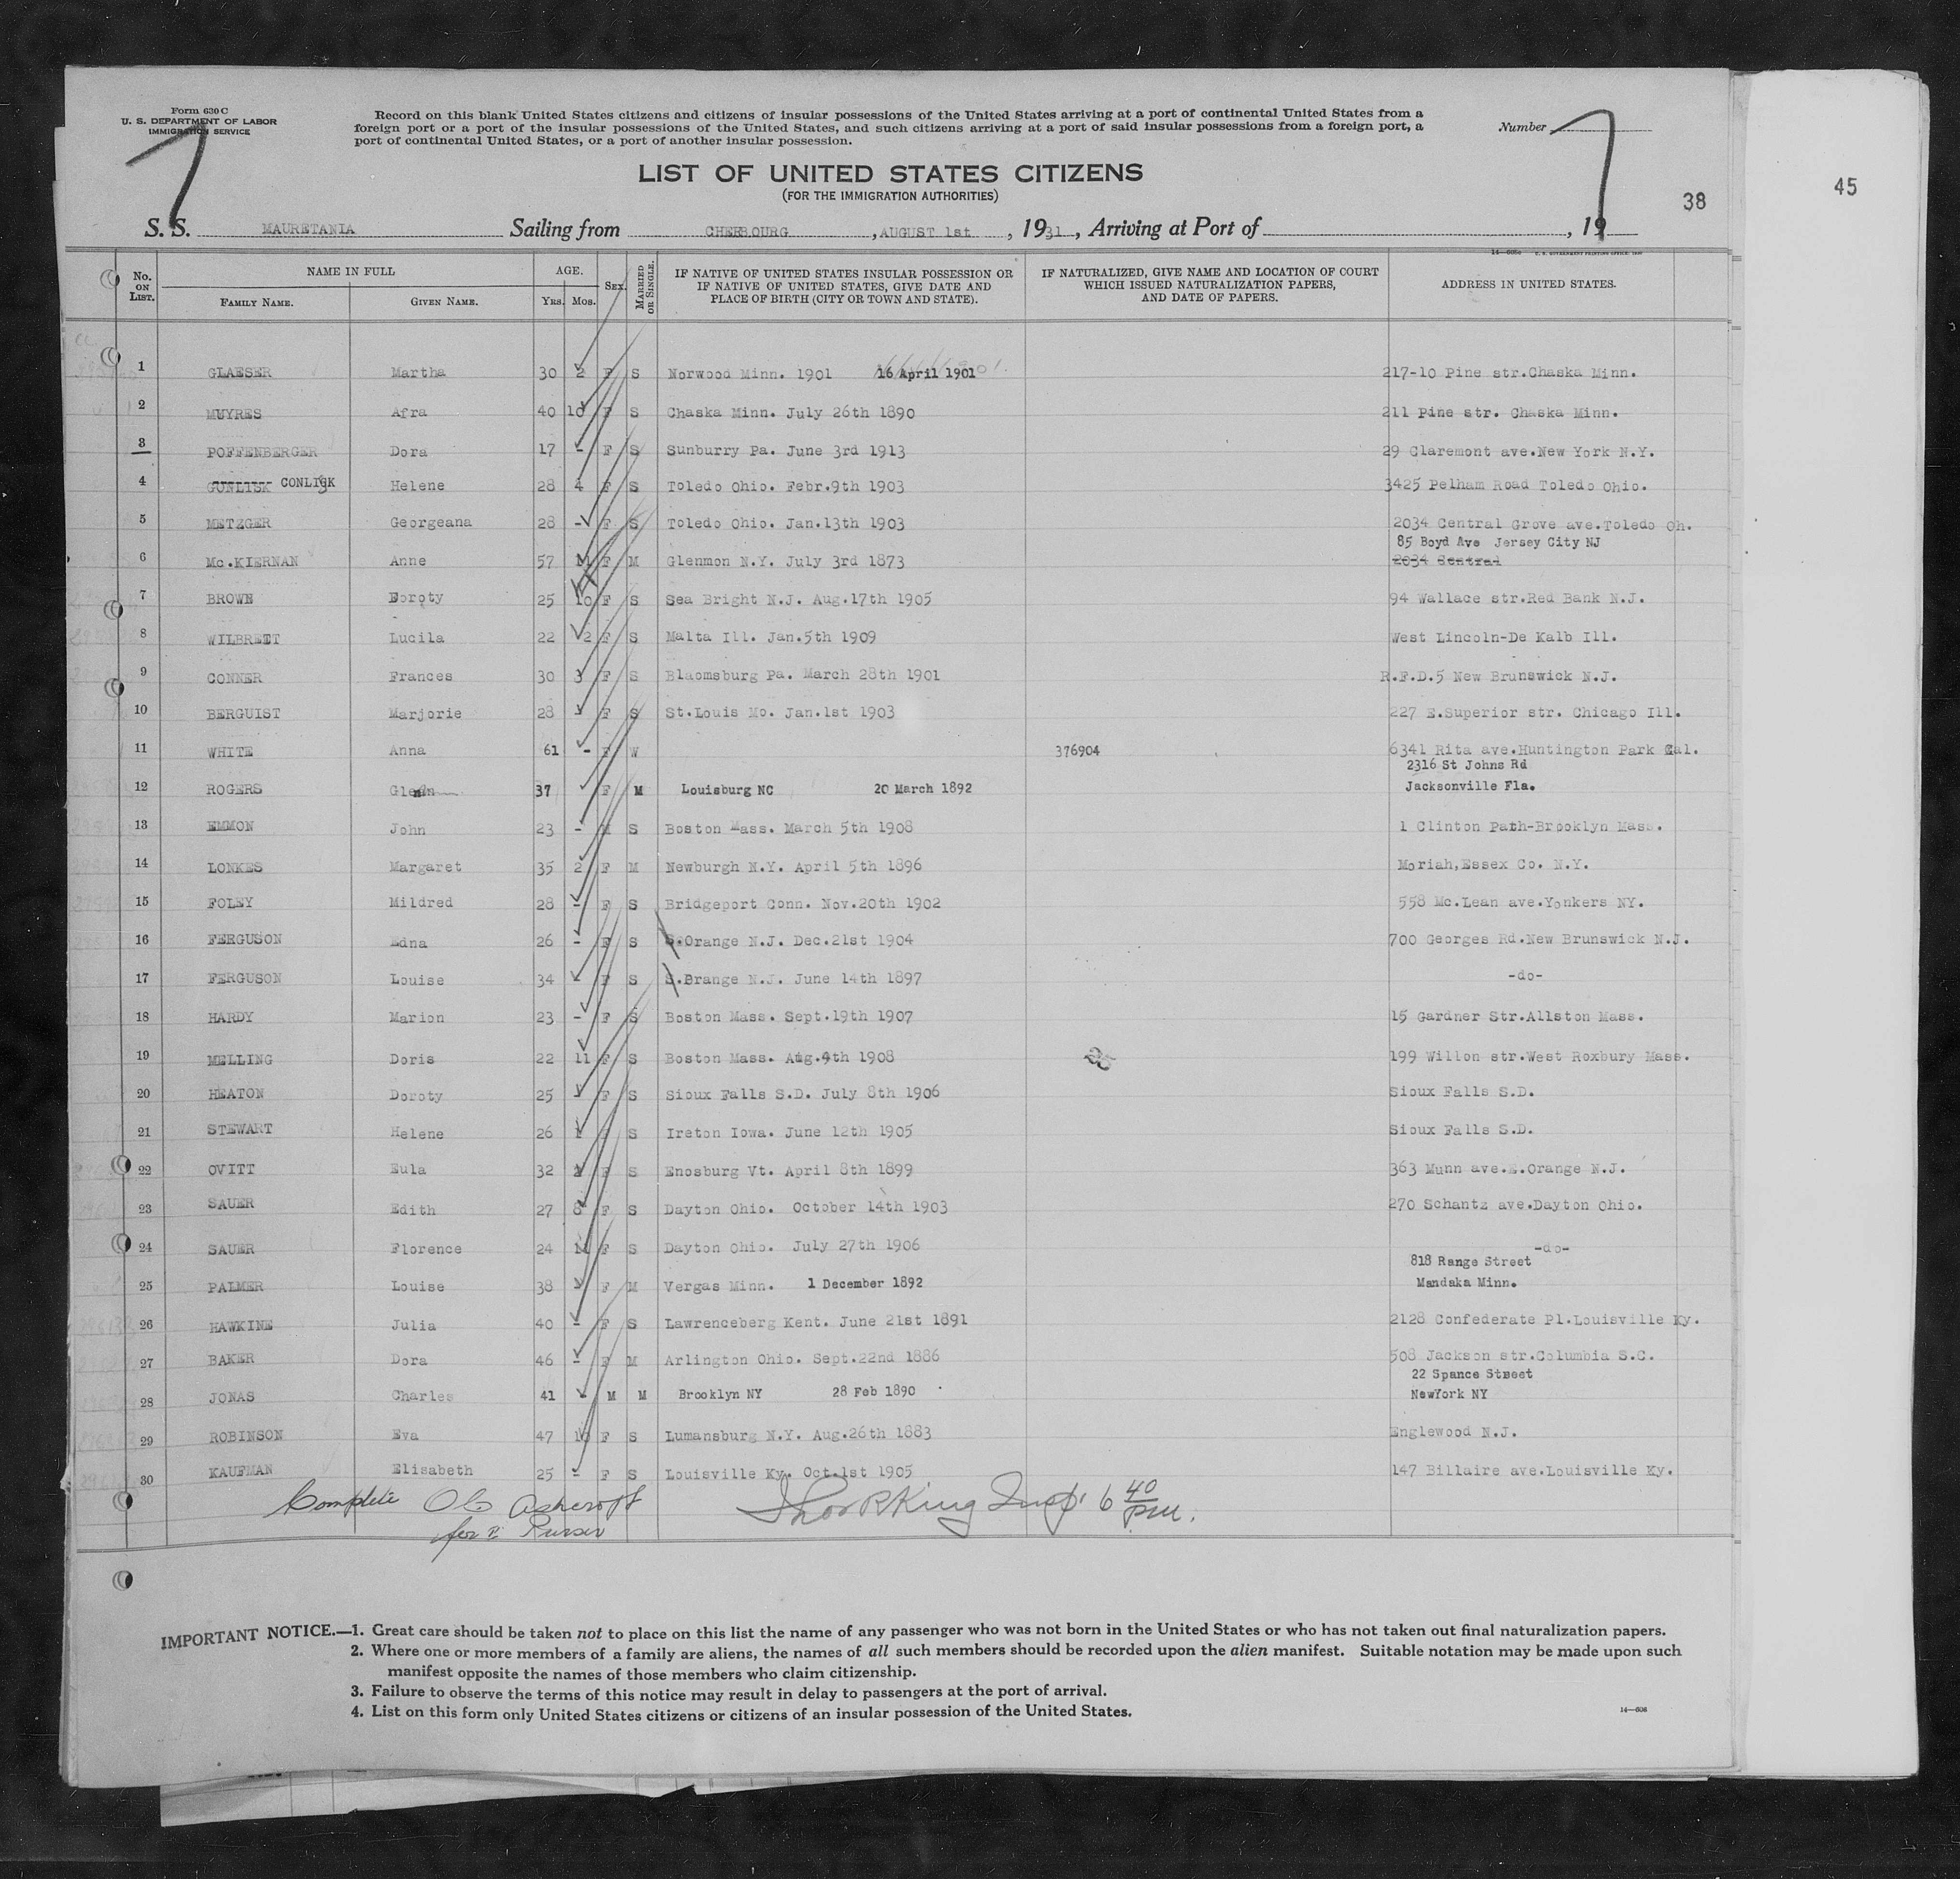 Form 630 C
U. S. DEPARTMENT OF LABOR
IMMIGRATION SERVICE
Record on this blank United States citizens and citizens of insular possessions of the United States arriving at a port of continental United States from a
foreign port or a port of the insular possessions of the United States, and such citizens arriving at a port of said insular possessions from a foreign port, a
port of continental United States, or a port of another insular possession.
Number
7 7
LIST OF UNITED STATES CITIZENS
(FOR THE IMMIGRATION AUTHORITIES)
38
45
S. S. MAURETANIA Sailing from CHERBOURG , AUGUST 1st , 1931 , Arriving at Port of , 19
No. ON LIST. NAME IN FULL FAMILY NAME. GIVEN NAME. AGE. YRS. MOS. SEX. MARRIED OR SINGLE. IF NATIVE OF UNITED STATES INSULAR POSSESSION OR IF NATIVE OF UNITED STATES, GIVE DATE AND PLACE OF BIRTH (CITY OR TOWN AND STATE). IF NATURALIZED, GIVE NAME AND LOCATION OF COURT WHICH ISSUED NATURALIZATION PAPERS, AND DATE OF PAPERS. ADDRESS IN UNITED STATES.
1 GLAESER Martha 30 2 F S Norwood Minn. 1901 16 April 1901 217-10 Pine str.Chaska Minn.
2 MUYRES Afra 40 10 F S Chaska Minn. July 26th 1890 211 Pine str. Chaska Minn.
3 POFFENBERGER Dora 17 - F S Sunburry Pa. June 3rd 1913 29 Claremont ave.New York N.Y.
4 GUNLISK CONLISK Helene 28 4 F S Toledo Ohio. Febr.9th 1903 3425 Pelham Road Toledo Ohio.
5 METZGER Georgeana 28 - F S Toledo Ohio. Jan.13th 1903 2034 Central Grove ave.Toledo Oh.
85 Boyd Ave Jersey City NJ
6 Mc.KIERNAN Anne 57 11 F M Glenmon N.Y. July 3rd 1873 2034 Sentral
7 BROWN Doroty 25 10 F S Sea Bright N.J. Aug.17th 1905 94 Wallace str.Red Bank N.J.
8 WILBRETT Lucila 22 2 F S Malta Ill. Jan.5th 1909 West Lincoln-De Kalb Ill.
9 CONNER Frances 30 3 F S Blaomsburg Pa. March 28th 1901 R.F.D.5 New Brunswick N.J.
10 BERGUIST Marjorie 28 - F S St.Louis Mo. Jan.1st 1903 227 E.Superior str. Chicago Ill.
11 WHITE Anna 61 - F W 376904 6341 Rita ave.Huntington Park Cal.
2316 St Johns Rd
12 ROGERS Glenn 37 F M Louisburg NC 20 March 1892 Jacksonville Fla.
13 EMMON John 23 - M S Boston Mass. March 5th 1908 1 Clinton Path-Brooklyn Mass.
14 LONKES Margaret 35 2 F M Newburgh N.Y. April 5th 1896 Moriah,Essex Co. N.Y.
15 FOLEY Mildred 28 - F S Bridgeport Conn. Nov.20th 1902 558 Mc.Lean ave.Yonkers NY.
16 FERGUSON Edna 26 - F S S.Orange N.J. Dec.21st 1904 700 Georges Rd.New Brunswick N.J.
17 FERGUSON Louise 34 - F S S.Orange N.J. June 14th 1897 -do-
18 HARDY Marion 23 - F S Boston Mass. Sept.19th 1907 15 Gardner Str.Allston Mass.
19 MELLING Doris 22 11 F S Boston Mass. Aug.4th 1908 199 Willon str.West Roxbury Mass.
20 HEATON Doroty 25 F S Sioux Falls S.D. July 8th 1906 Sioux Falls S.D.
21 STEWART Helene 26 1 F S Ireton Iowa. June 12th 1905 Sioux Falls S.D.
22 OVITT Eula 32 2 F S Enosburg Vt. April 8th 1899 363 Munn ave.E.Orange N.J.
23 SAUER Edith 27 8 F S Dayton Ohio. October 14th 1903 270 Schantz ave.Dayton Ohio.
24 SAUER Florence 24 11 F S Dayton Ohio. July 27th 1906 -do-
818 Range Street
25 PALMER Louise 38 F M Vergas Minn. 1 December 1892 Mandaka Minn.
26 HAWKINE Julia 40 - F S Lawrenceberg Kent. June 21st 1891 2128 Confederate Pl.Louisville Ky.
27 BAKER Dora 46 - F M Arlington Ohio. Sept.22nd 1886 508 Jackson str.Columbia S.C.
22 Spance Street
28 JONAS Charles 41 - M M Brooklyn NY 28 Feb 1890 NewYork NY
29 ROBINSON Eva 47 10 F S Lumansburg N.Y. Aug.26th 1883 Englewood N.J.
30 KAUFMAN Elisabeth 25 - F S Louisville Ky. Oct.1st 1905 147 Billaire ave.Louisville Ky.
Complete Ashcroft King Insp. 6 40 pm.
for Purser
IMPORTANT NOTICE.—1. Great care should be taken not to place on this list the name of any passenger who was not born in the United States or who has not taken out final naturalization papers.
2. Where one or more members of a family are aliens, the names of all such members should be recorded upon the alien manifest. Suitable notation may be made upon such
manifest opposite the names of those members who claim citizenship.
3. Failure to observe the terms of this notice may result in delay to passengers at the port of arrival.
4. List on this form only United States citizens or citizens of an insular possession of the United States.
14—606